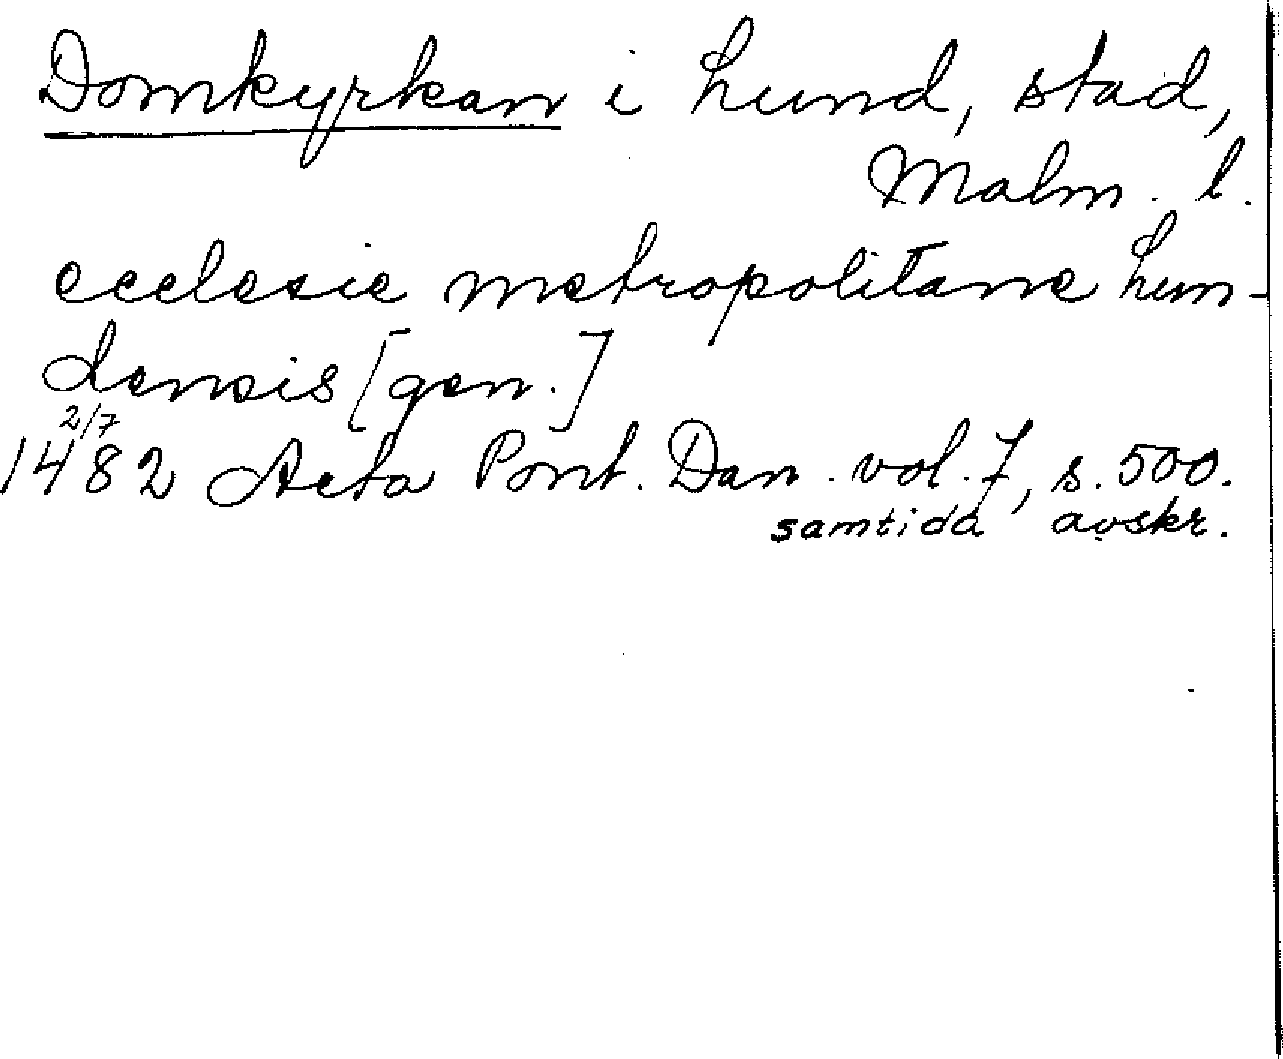 Domkyrkan i Lund, stad,
Malm. l.
ecclesie metropolitane Lun-
densis [gen.]
2/7
1482 Acta Pont. Dan. vol. 7, s. 500.
samtida avskr.